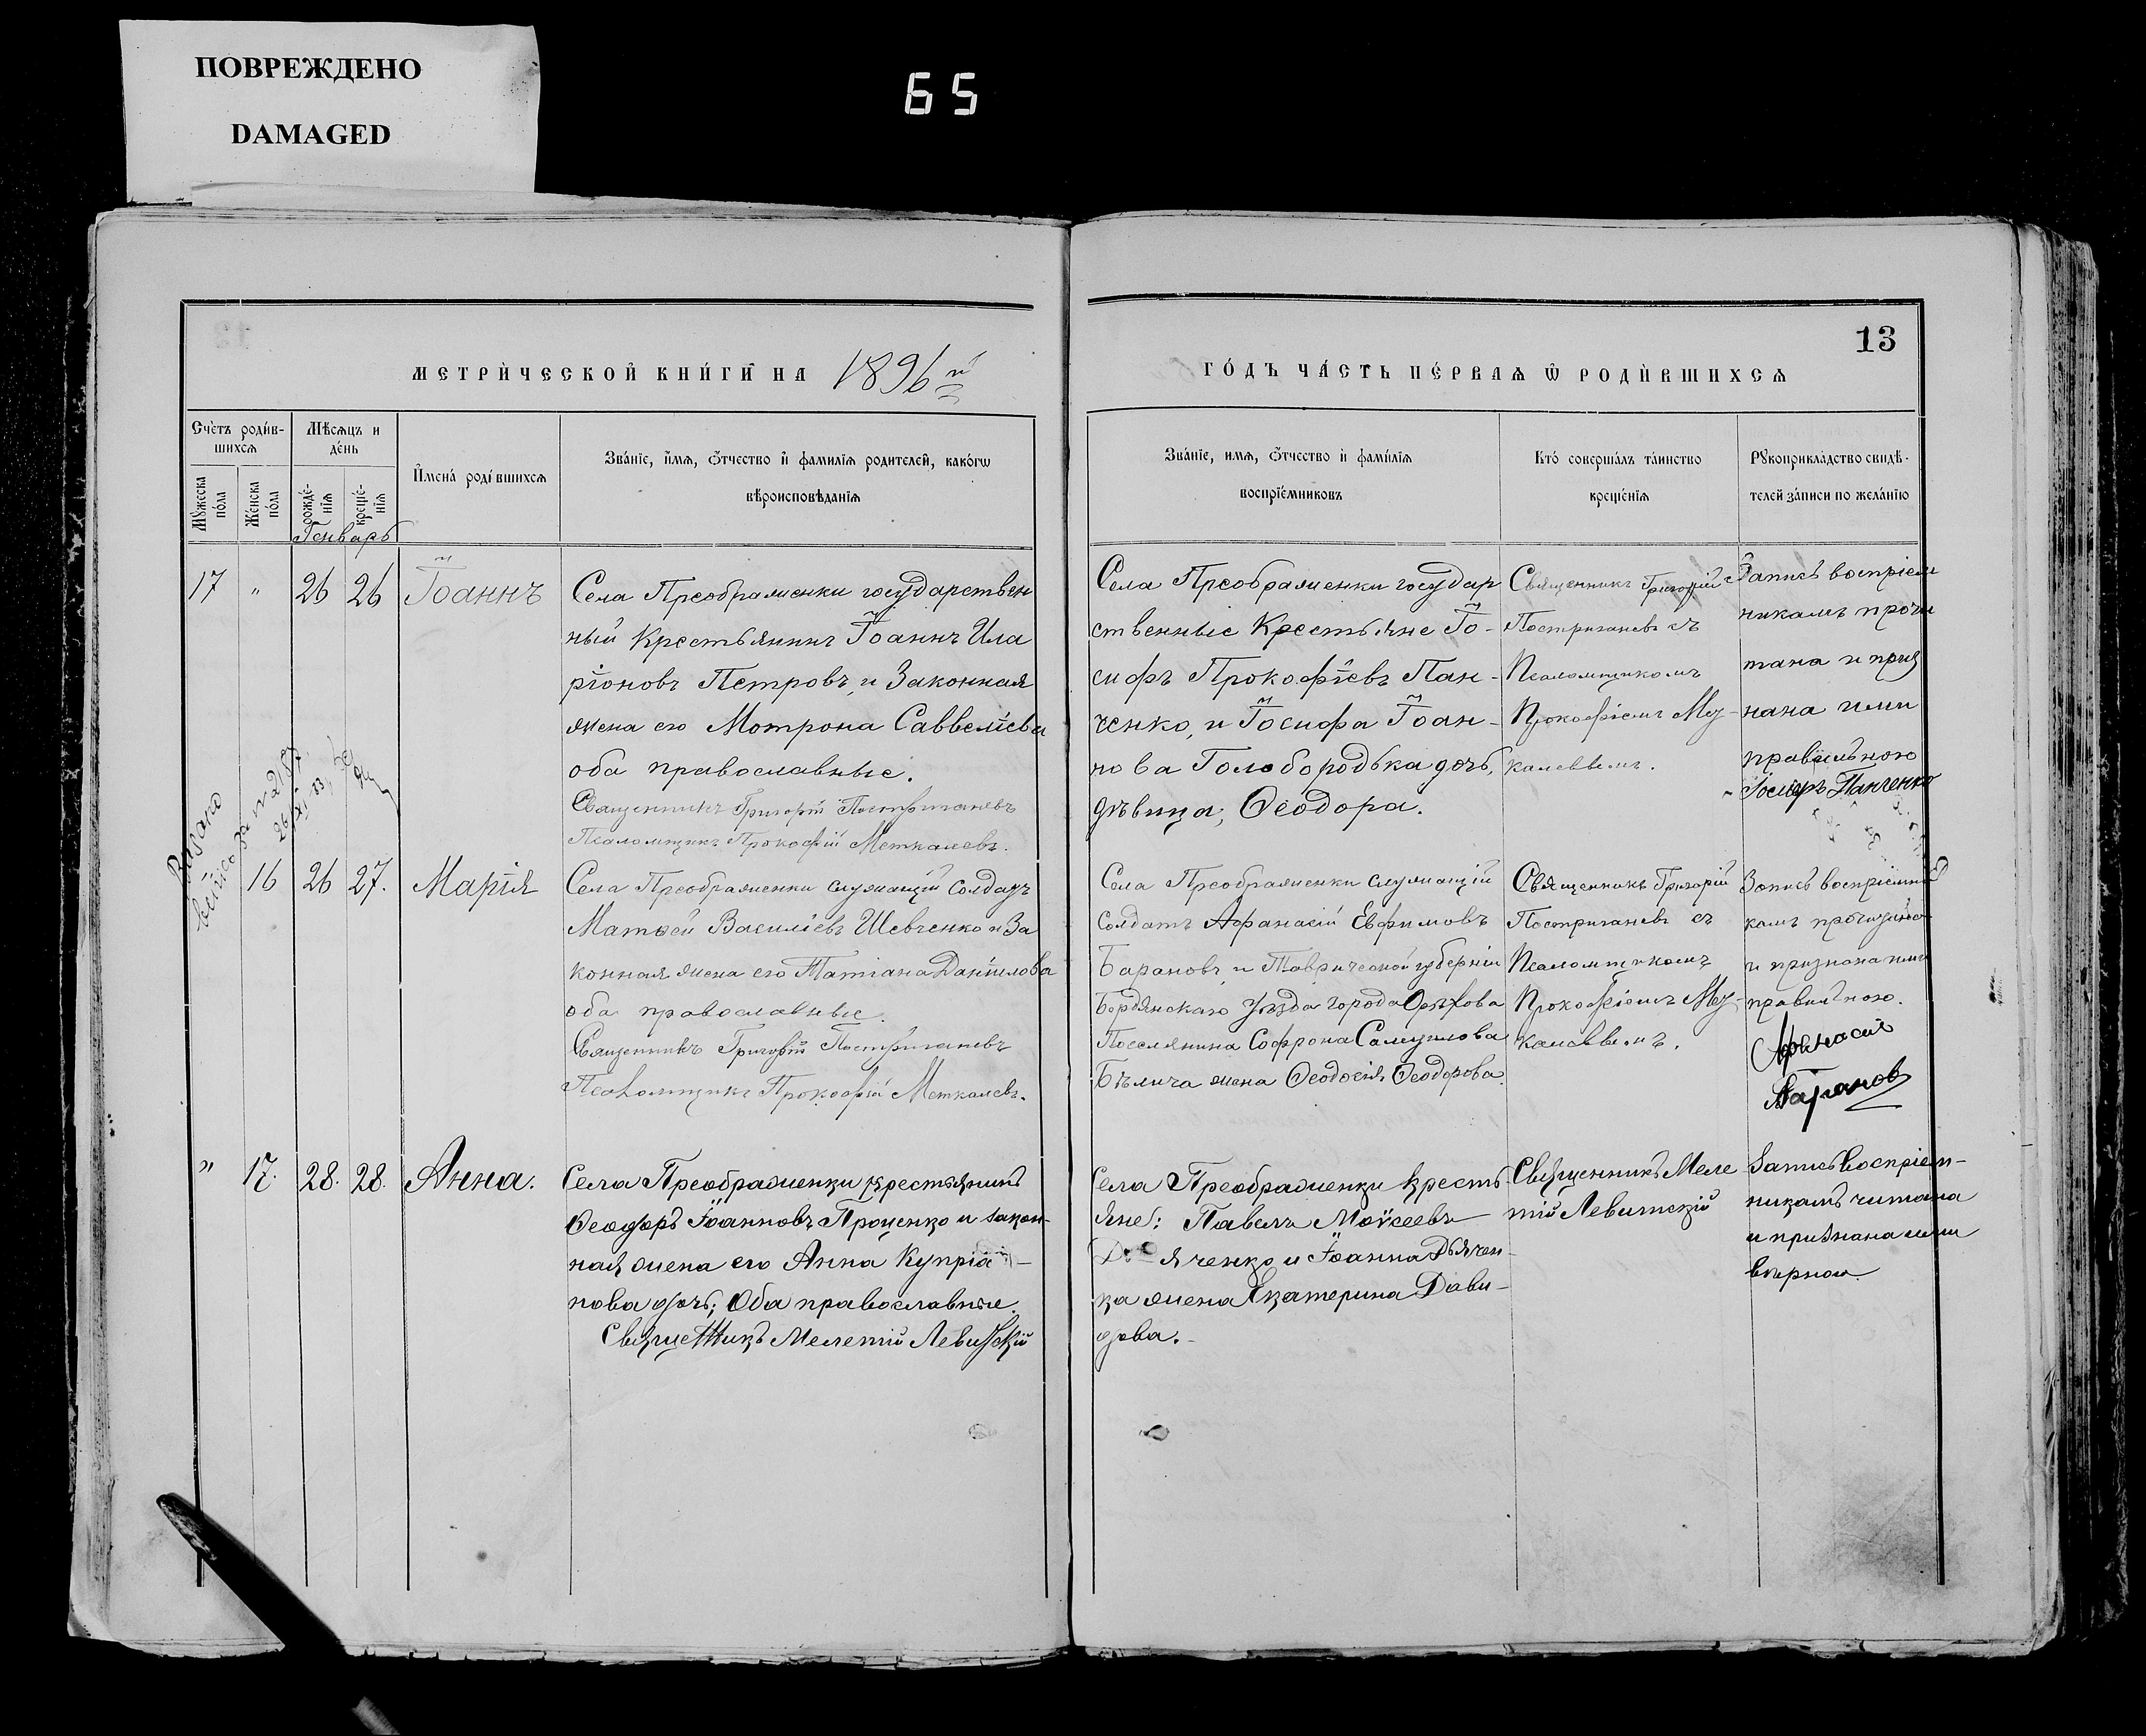 ПОВРЕЖДЕНО
DAMAGED
65
13
МЕТРИ́ЧЕСКОЙ КНИ́ГИ НА 1896 й
ГО́ДЪ ЧА́СТЬ ПЕ́РВАѦ Ѡ РОДИ́ВШИХСѦ
Сче́тъ роди́в-
шихсѧ
Мѣсѧцъ и
де́нь
Мꙋ́жеска
по́ла
Же́нска
по́ла
рожде́-
нїѧ
креще́-
нїѧ
Генварь
И҆мена́ роди́вшихсѧ
Зва́нїе, и҆́мѧ, ѻ҆́тчество и҆ фами́лїѧ роди́телей, како́гѡ
вѣроисповѣ́данїѧ
Зва́нїе, имѧ, ѻ҆́тчество и҆ фами́лїѧ
воспрїе́мниковъ
Кто́ соверша́лъ та́инство
креще́нїѧ
Рꙋкоприкла́дство свидѣ́-
телей за́писи по жела́нїю
17 " 26 26 Іоаннъ
Села Преображенки государствен
ный крестьянинъ Іоаннъ Ила
ріоновъ Петровъ, и законная
жена его Мотрона Саввеліева
оба православные.
Священникъ Григорій Постригачевъ
Псаломщикъ Прокофій Меткалевъ.
Села Преображенки государ
ственные Крестьяне Іо-
сифъ Прокофіевъ Пан-
ченко, и Іосифа Іоан-
нова Голобородька дочь,
дѣвица, Ѳеодора.
Священникъ Григорій
Постригачевъ съ
Псаломщикомъ
Прокофіемъ Ме-
калевымъ.
Запись воспріем
никамъ прочи
тана и приз
нана ими
правильною
Іосифъ Панченко
16 26 27. Марія
Села Преображенки служащій солдатъ
Матѳей Василіевъ Шевченко и За
конная жена его Татіана Даніилова
оба православные.
Священникъ Григорій Постригачевъ
Псаломщикъ Прокофій Меткалевъ.
Села Преображенки служащій
солдатъ Афанасій Евфимовъ
Барановъ и Таврической губерніи
Бердянскаго уѣзда города Орѣхова
Поселянина Софрона Самуилова
Бѣлича жена Ѳеодосія Ѳеодорова.
Священникъ Григорій
Постригачевъ съ
Псаломщикомъ
Прокофіемъ Ме-
калевымъ.
Запись воспріемни
камъ прочитана
и признана ими
правильною.
Афанасій
Барановъ
" 17. 28. 28. Анна.
Села Преображенки крестьянинъ
Ѳеодоръ Іоанновъ Проценко и закон-
ная жена его Анна Купрія-
нова дочь; Оба православные.
Священникъ Мелетій Левитскій
Села Преображенки кресть
яне: Павелъ Моѵсеевъ
Дьяченко и Іоанна Дьячен-
ка жена Екатерина Дави-
дова.
Священникъ Меле
тій Левитскій
Запись воспріем-
никамъ читана
и признана ими
вѣрною.